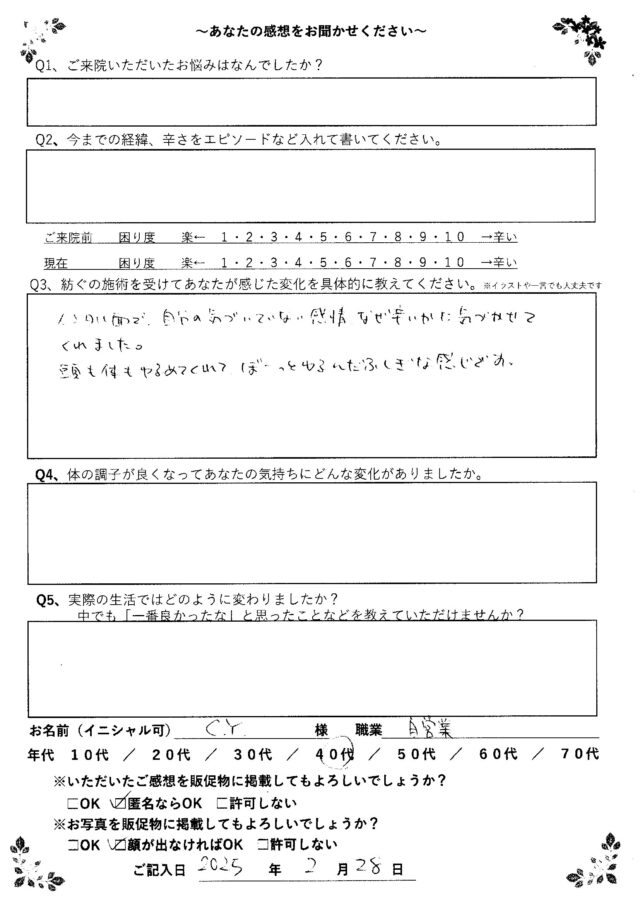 ～あなたの感想をお聞かせください～
Q1、ご来院いただいたお悩みはなんでしたか？
Q2、今までの経緯、辛さをエピソードなど入れて書いてください。
ご来院前 困り度 楽← 1・2・3・4・5・6・7・8・9・10 →辛い
現在 困り度 楽← 1・2・3・4・5・6・7・8・9・10 →辛い
Q3、紡ぐの施術を受けてあなたが感じた変化を具体的に教えてください。※イラストや一言でも人丈夫です
面で、自分の気づいていない感情、なぜ辛いかに気づかせて
くれました。
頭も体もゆるめてくれて ぼーっとゆるんだふしぎな感じです。
Q4、体の調子が良くなってあなたの気持ちにどんな変化がありましたか。
Q5、実際の生活ではどのように変わりましたか？
中でも「一番良かったな」と思ったことなどを教えていただけませんか？
お名前（イニシャル可） C.Y. 様 職業 自営業
年代 10代 ／ 20代 ／ 30代 ／ 40代 ／ 50代 ／ 60代 ／ 70代
※いただいたご感想を販促物に掲載してもよろしいでしょうか？
□OK ☑匿名ならOK □許可しない
※お写真を販促物に掲載してもよろしいでしょうか？
□OK ☑顔が出なければOK □許可しない
ご記入日 2025 年 2 月 28 日